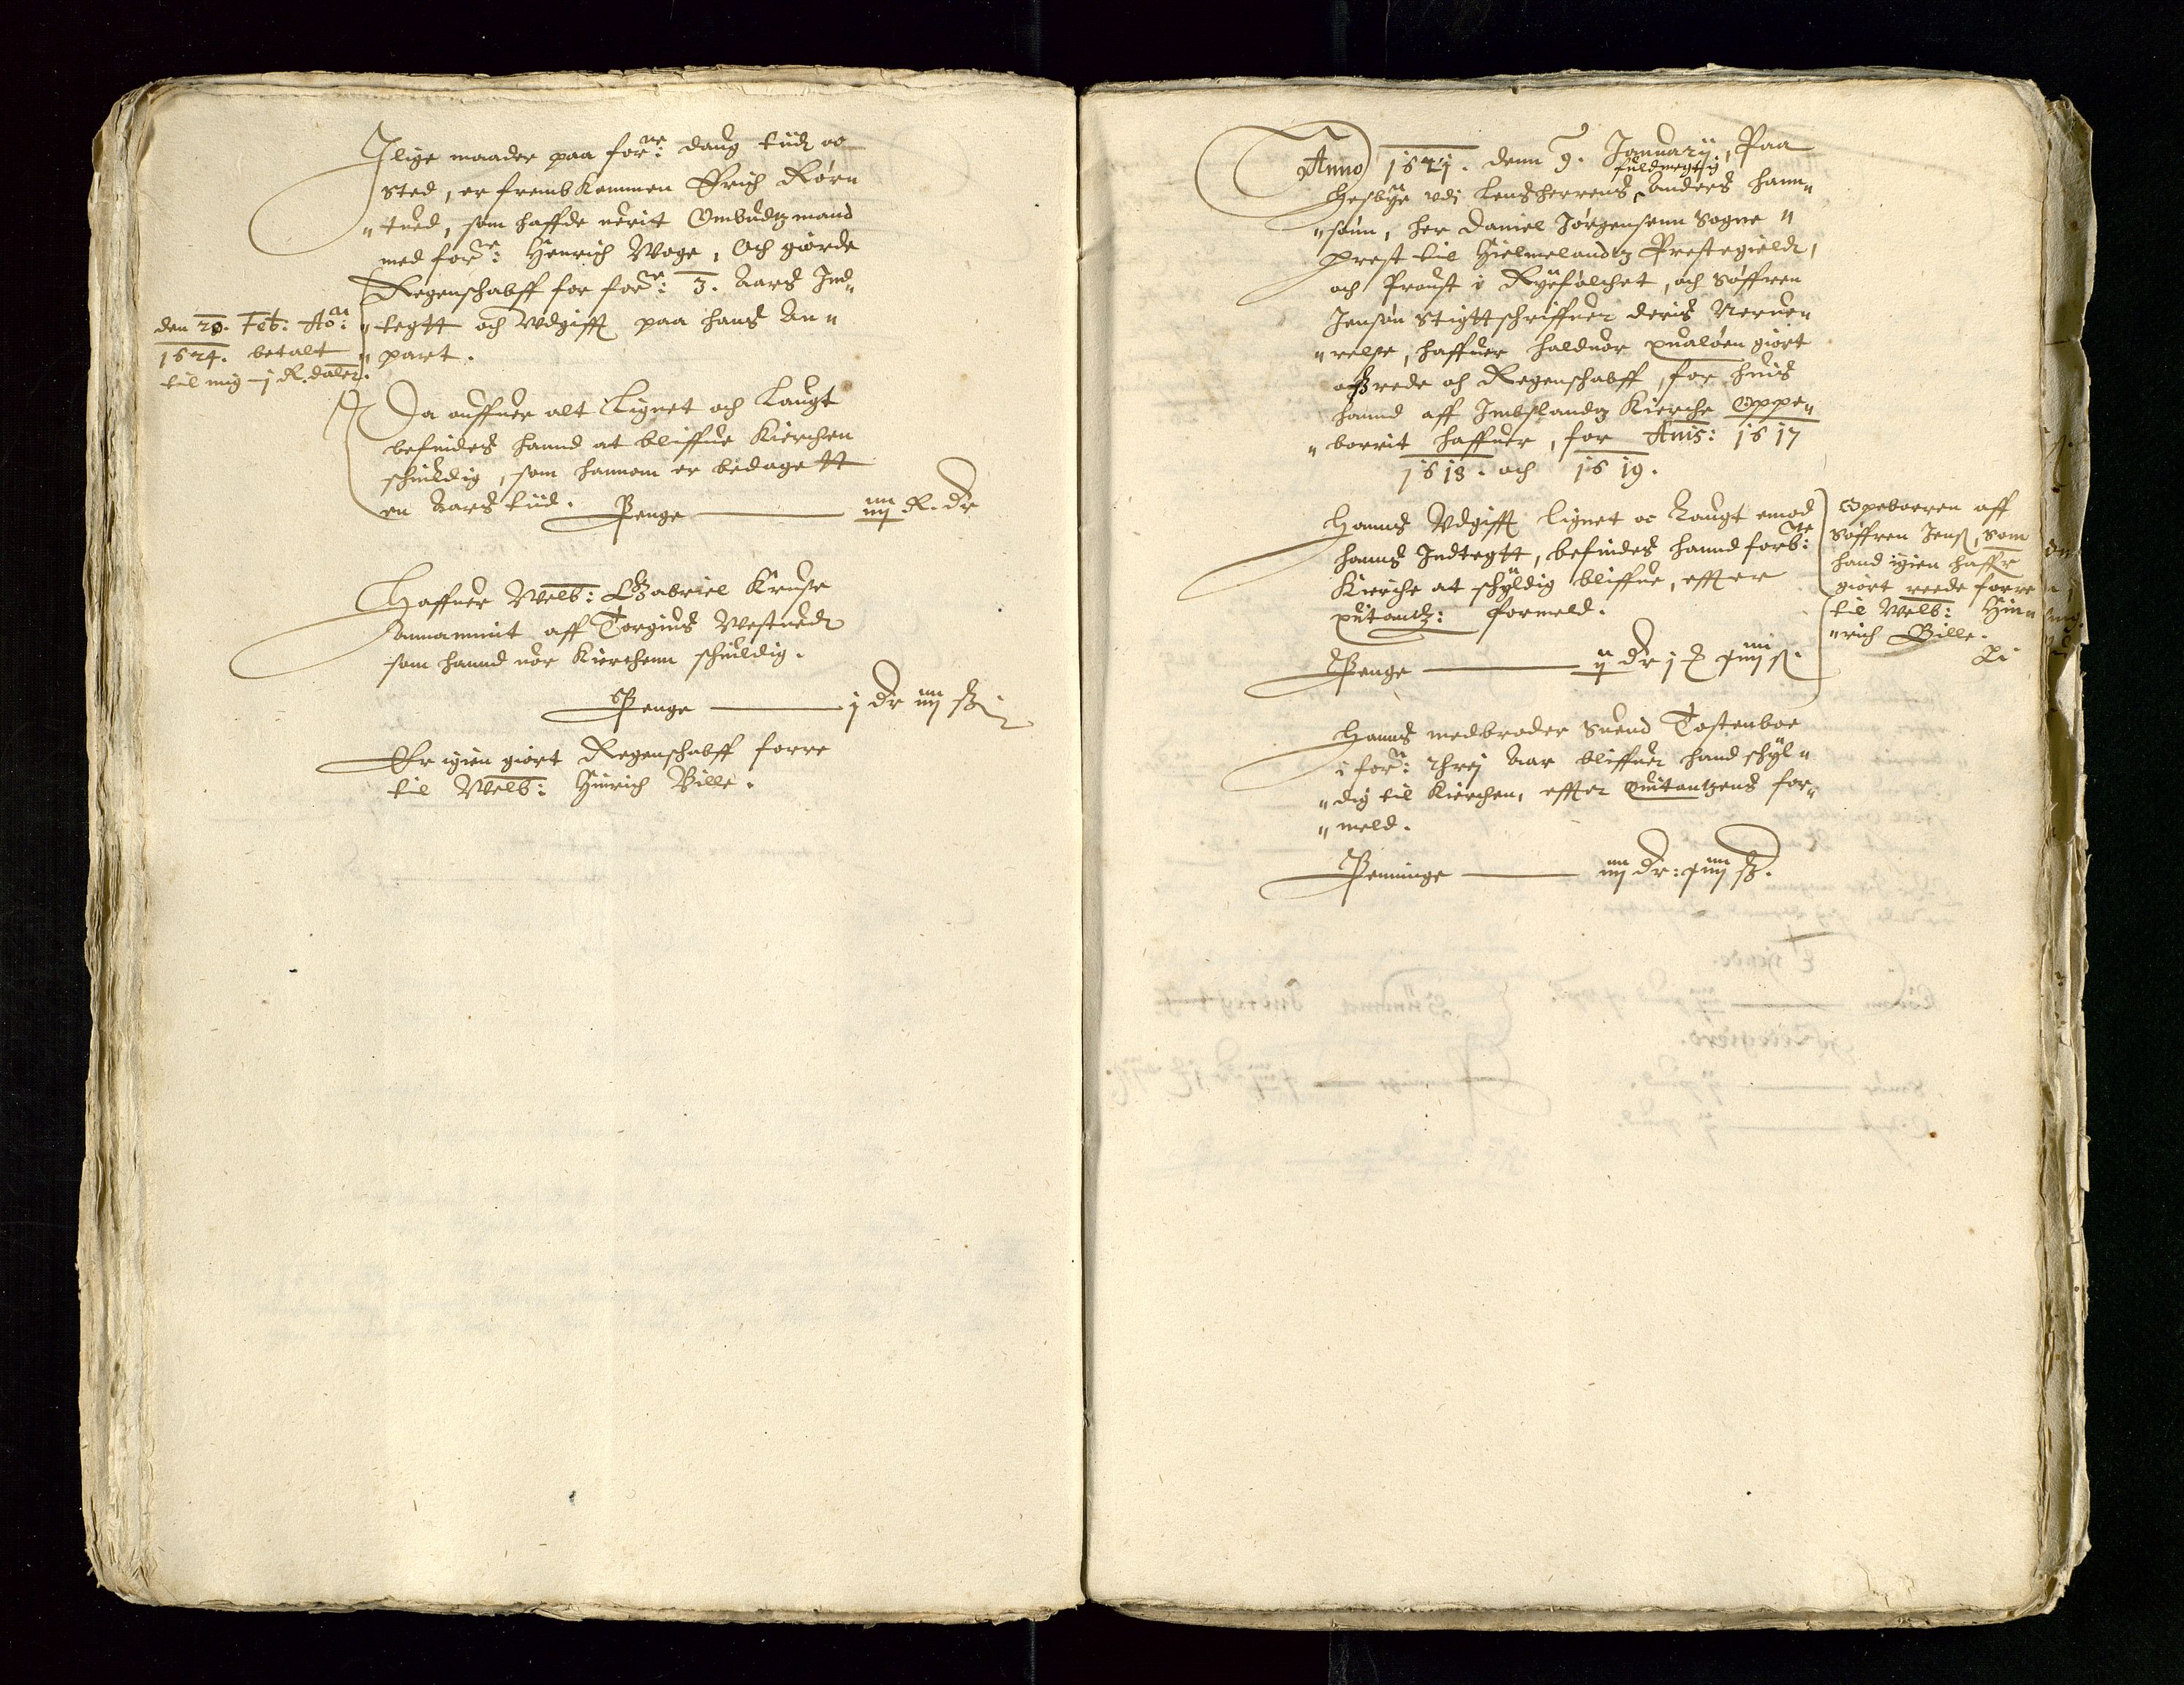 Ilige maader paa forne: daug tiidt oc
sted, er fremb kommen Erich Rørn
"tued, som haffde uerit Ombudtzmand
med forne: Henrich Woge, Och giørde
Regenschabff for forne: 3. Aars Ind-
"tegtt och Udgifft paa hans An"
"part.
den 20. Feb: Ao:
1624. betalt
til mig - j R.daler.
Da ouffuer alt Lignet och Laugt
befindes hannd at bliffue Kierchen
schuldig, som hannom er bedagett
en Aars tiid.
Penge — iiij R. dr
Haffuer Welb: Gabriel Kruse
Annammit aff Torgius Westuedt
som hannd uor Kierchenn schuldig.
Penge — j dr iiij sz
Er igien giort Regenschabff forre
til Welb: Hinrich Bille.
Anno 1621. denn 9. Januarij, Paa
fuldmegtig
Hesbye udj Lensherrens Anders hann"
"sønn, Her Daniel Jørgensenn Sogne"
prest til Hielmelandtz Prestegieldt,
och Proust i Ryefølchet, och Søffren
Jensøn Stigttschriffuer deris Neruer"
"relse, haffuer Halduor Qualøen giort
och rede och Regenschabff, for huis
hannd aff Imbslandtz Kierche Oppe"
"borrit haffuer, for Anis: 1617
1618. och 1619.
Hanns Udgifft lignet oc Laugt emod
hanns Indtegtt, befindes hannd forbte:
Kierche at schyldig bliffue, effter
quitantz: formeld.
Penge — ij dr j ℥ xiiij s.
Opeboeren aff
Søffren Jenß, som
hand igien haffr
giort reede forre
til Welb: Hin"
"rich Bille.
Hanns medbroder Suend Tostenboe
i forn: Threj Aar bliffuer hand schyl"
"dig til Kierchen, effter Quitantzens for"
"meld.
Penninge — iiij dr: xiiij sz.